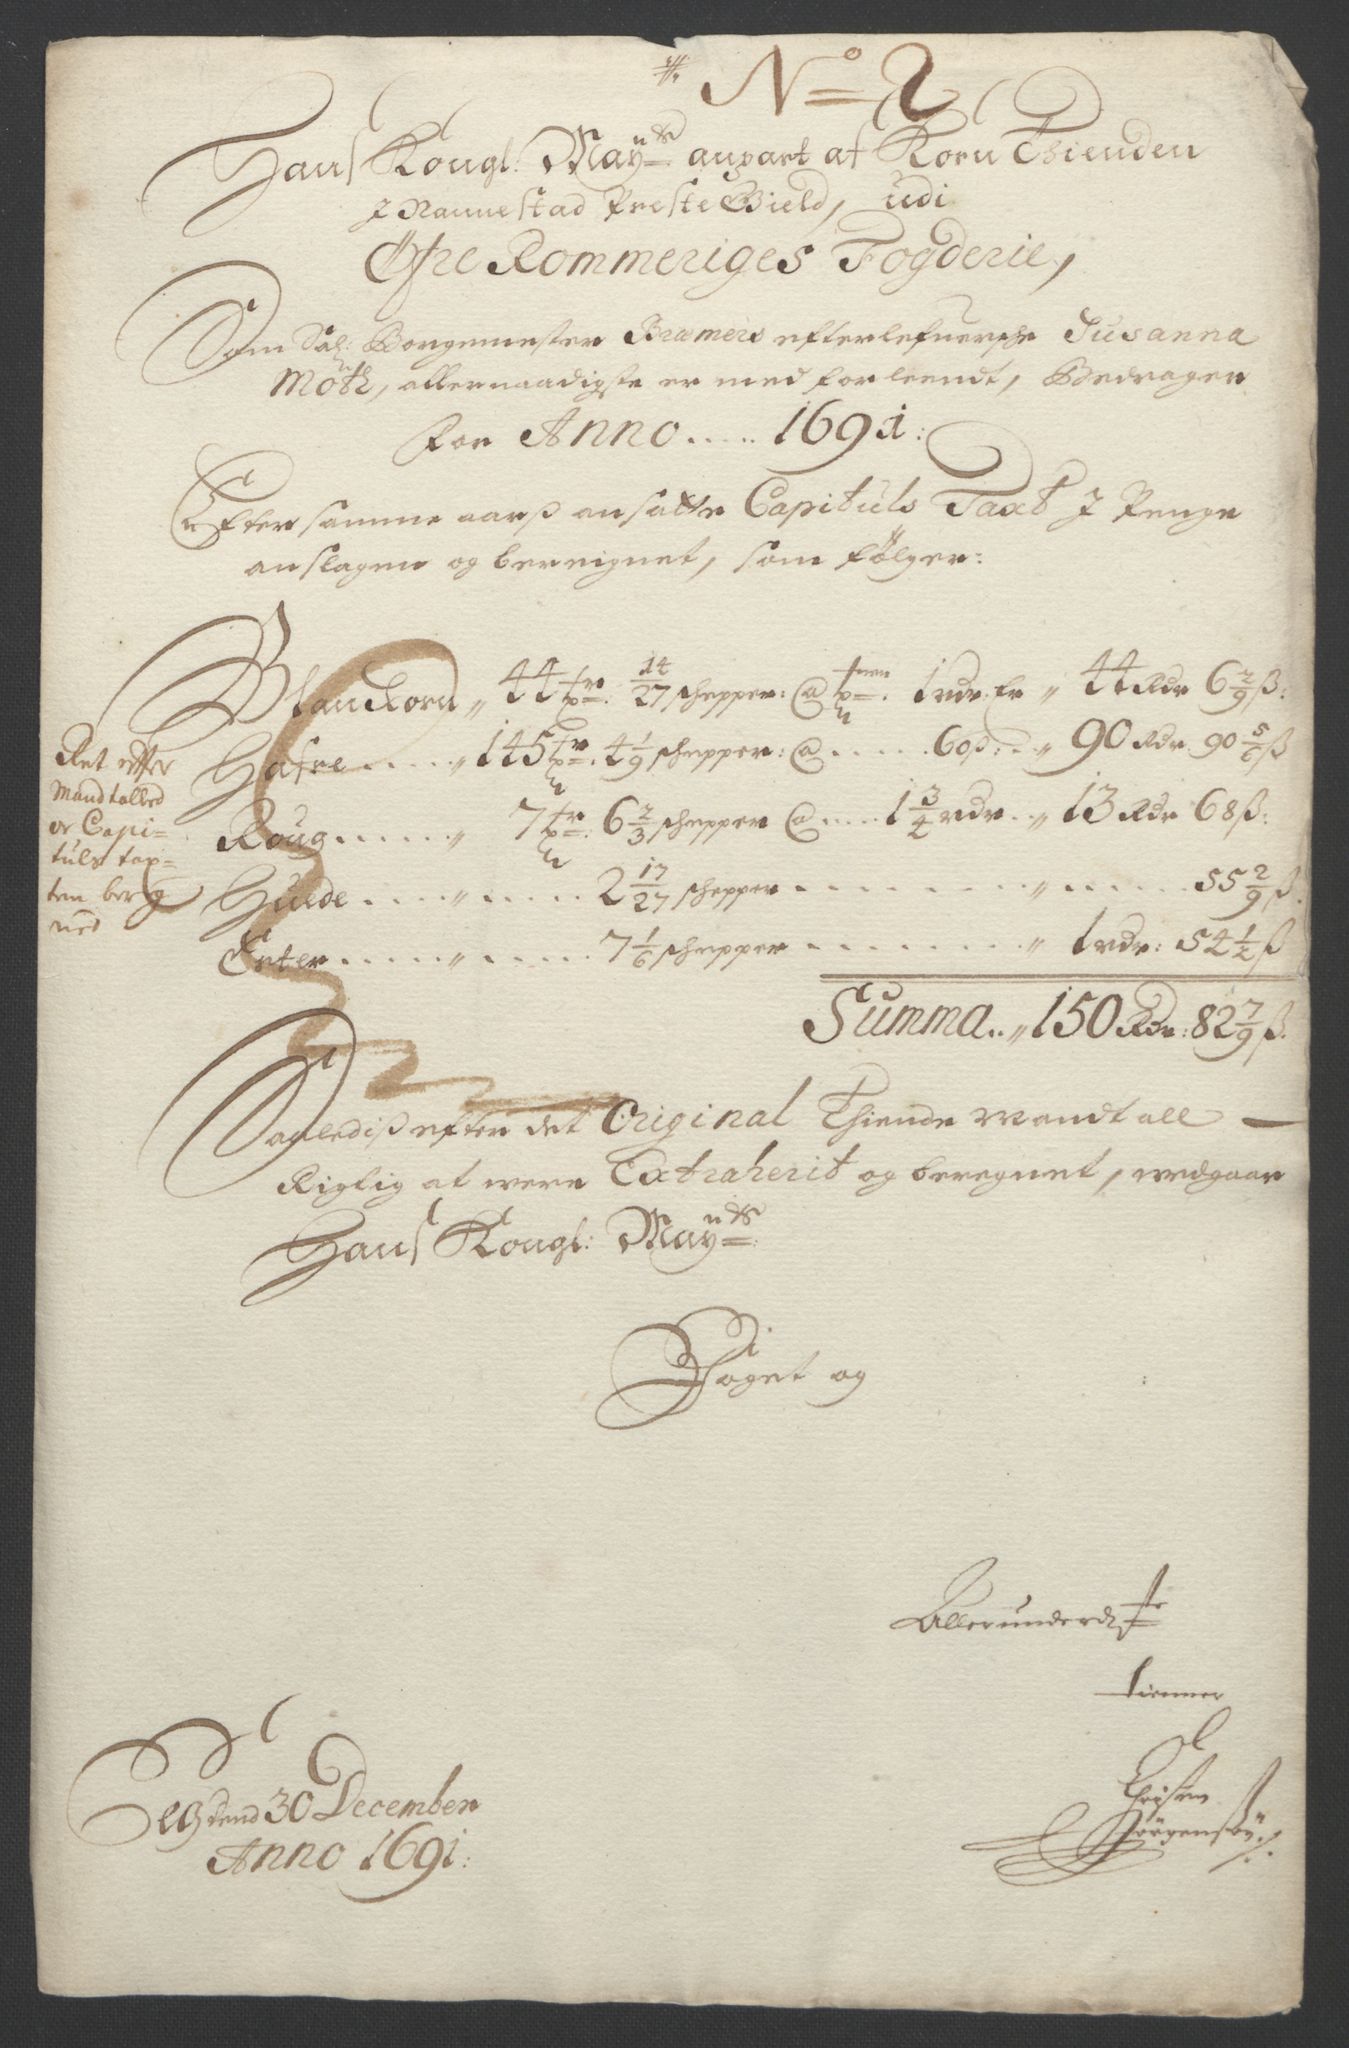 No 2
Hans Kongl: May:ts anpart af Korn Thienden
J Nannestad Preste Gield, udi
Øfre Rommeriges Fogderie,
Som Sal: Borgemester Bræmers efterlefuersche Susanna
Moth, allernaadigste er med forleendt, Bedrager
for Anno ..... 1691:
Efter samme aarß ansatte Capituls Taxt J Penge
anslagen og bereignet, som følger:
Blankorn „ 44 tr 14/27 schepper: @ tnen 1 rdr: er „ 44 Rdr 6 2/9 ß:
Hafre ..... „ 145 tr 4 1/9 schepper: @ ..... 60 ß: .. „ 90 Rdr 90 5/6 ß
Roug ..... „ 7 tr 6 2/3 schepper @ ..... 1 3/4 rdr .. „ 13 Rdr 68 ß:
Huede .... „ ..... 2 17/27 schepper ........ „ ...... 55 2/9 ß.
Erter ..... „ ...... 7 1/6 schepper ....... „ 1 rdr: 54 1/2 ß
Ret effter
Mandtalled
oc Capi-
tuls tax-
ten bereg
ned
Summa .. „ 150 Rdr: 82 7/9 ß.
Saalediß efter det Original Thiende Mandtall
Rigtig at were Extraherit og beregnet, vedgaar
Hans Kongl: May:ts
Foget og
Allerunderd:ste
tienner
Christen
Jørgensen
dend 30 December
Anno 1691: